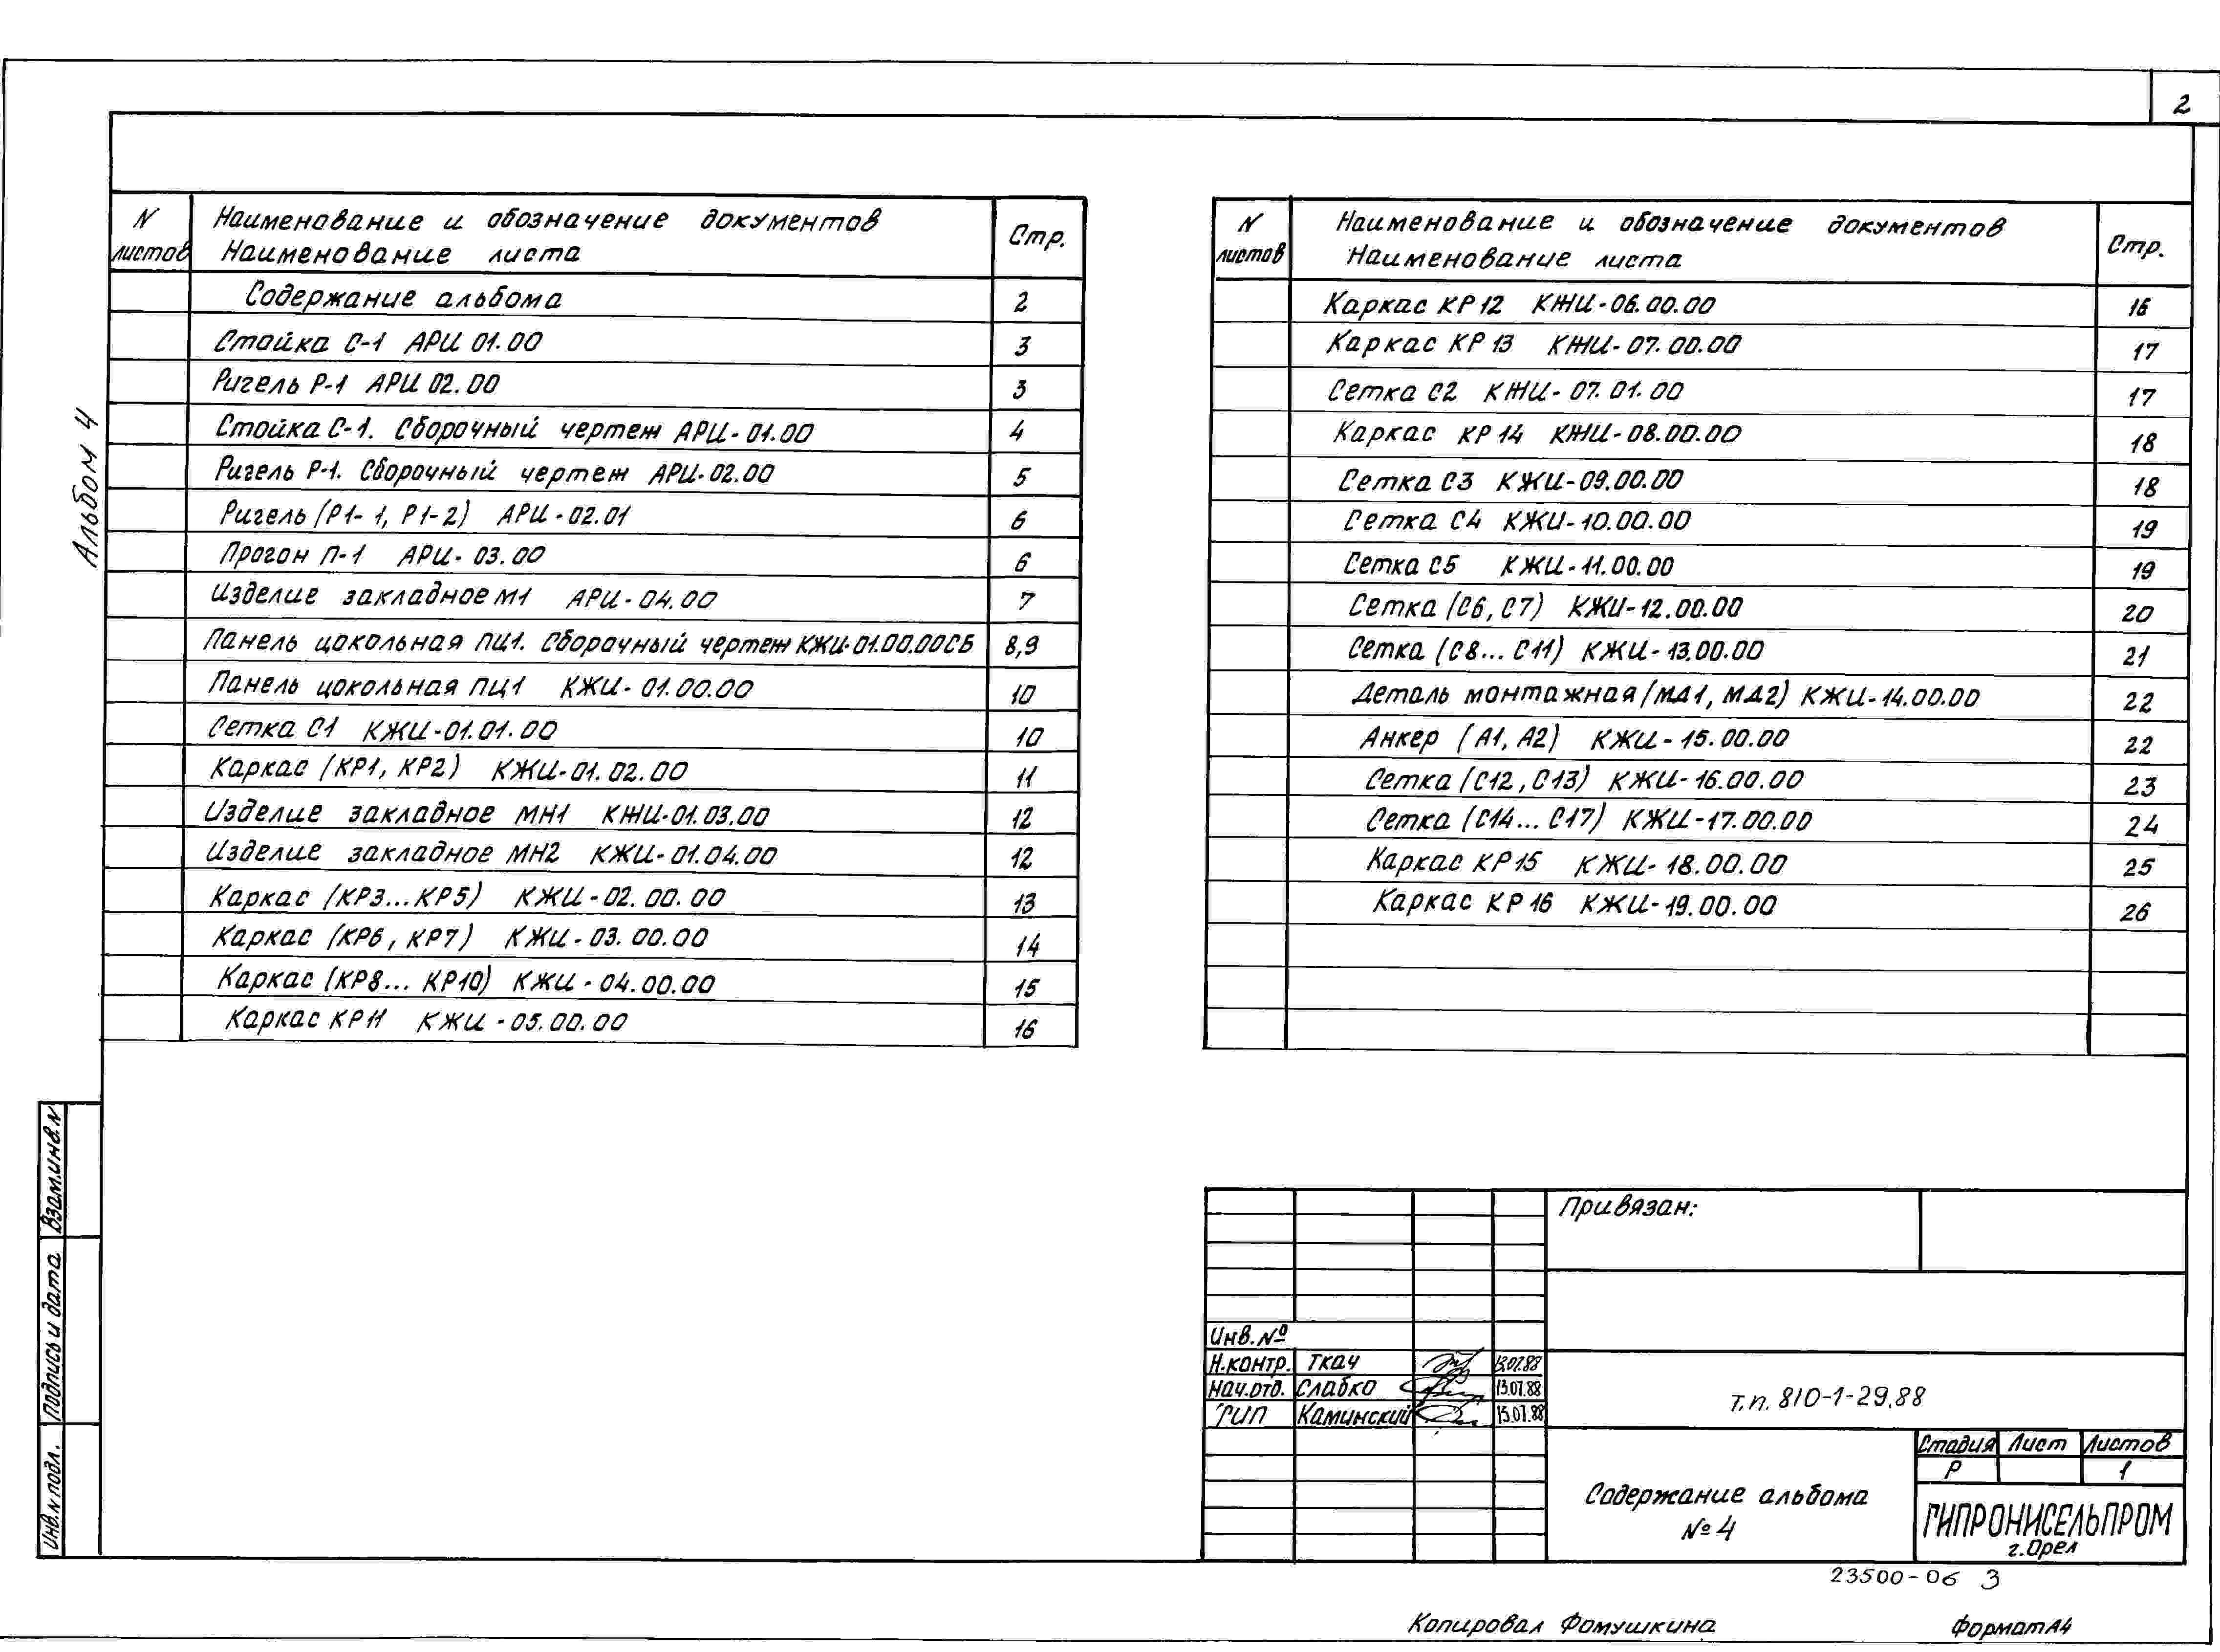 2
Альбом 4
N листов
Наименование и обозначение документов
Наименование листа
Стр.
Содержание альбома 2
Стойка С-1 АРИ 01.00 3
Ригель Р-1 АРИ 02.00 3
Стойка С-1. Сборочный чертеж АРИ-01.00 4
Ригель Р-1. Сборочный чертеж АРИ-02.00 5
Ригель (Р1-1, Р1-2) АРИ-02.01 6
Прогон П-1 АРИ-03.00 6
Изделие закладное М1 АРИ-04.00 7
Панель цокольная ПЦ1. Сборочный чертеж КЖИ-01.00.00СБ 8,9
Панель цокольная ПЦ1 КЖИ-01.00.00 10
Сетка С1 КЖИ-01.01.00 10
Каркас (КР1, КР2) КЖИ-01.02.00 11
Изделие закладное МН1 КЖИ-01.03.00 12
Изделие закладное МН2 КЖИ-01.04.00 12
Каркас (КР3...КР5) КЖИ-02.00.00 13
Каркас (КР6, КР7) КЖИ-03.00.00 14
Каркас (КР8... КР10) КЖИ-04.00.00 15
Каркас КР11 КЖИ-05.00.00 16
N листов
Наименование и обозначение документов
Наименование листа
Стр.
Каркас КР12 КЖИ-06.00.00 16
Каркас КР13 КЖИ-07.00.00 17
Сетка С2 КЖИ-07.01.00 17
Каркас КР14 КЖИ-08.00.00 18
Сетка С3 КЖИ-09.00.00 18
Сетка С4 КЖИ-10.00.00 19
Сетка С5 КЖИ-11.00.00 19
Сетка (С6, С7) КЖИ-12.00.00 20
Сетка (С8... С11) КЖИ-13.00.00 21
Деталь монтажная (МД1, МД2) КЖИ-14.00.00 22
Анкер (А1, А2) КЖИ-15.00.00 22
Сетка (С12, С13) КЖИ-16.00.00 23
Сетка (С14... С17) КЖИ-17.00.00 24
Каркас КР15 КЖИ-18.00.00 25
Каркас КР16 КЖИ-19.00.00 26
Взам.инв.N
Подпись и дата
Инв.N подл.
Привязан:
Инв.№
Н.контр. Ткач 13.07.88
Нач.отд. Слабко 13.07.88
ГИП Каминский 13.07.88
т.п. 810-1-29.88
Стадия Лист Листов
Р 1
Содержание альбома
№ 4
ГИПРОНИСЕЛЬПРОМ
г.Орел
23500-06 3
Копировал Фомушкина
Формат А4